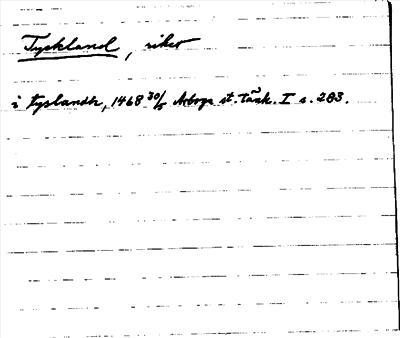 Tyskland, riket
i tyslandh, 1468 30/5 Arboga st. tänk. I s. 283.